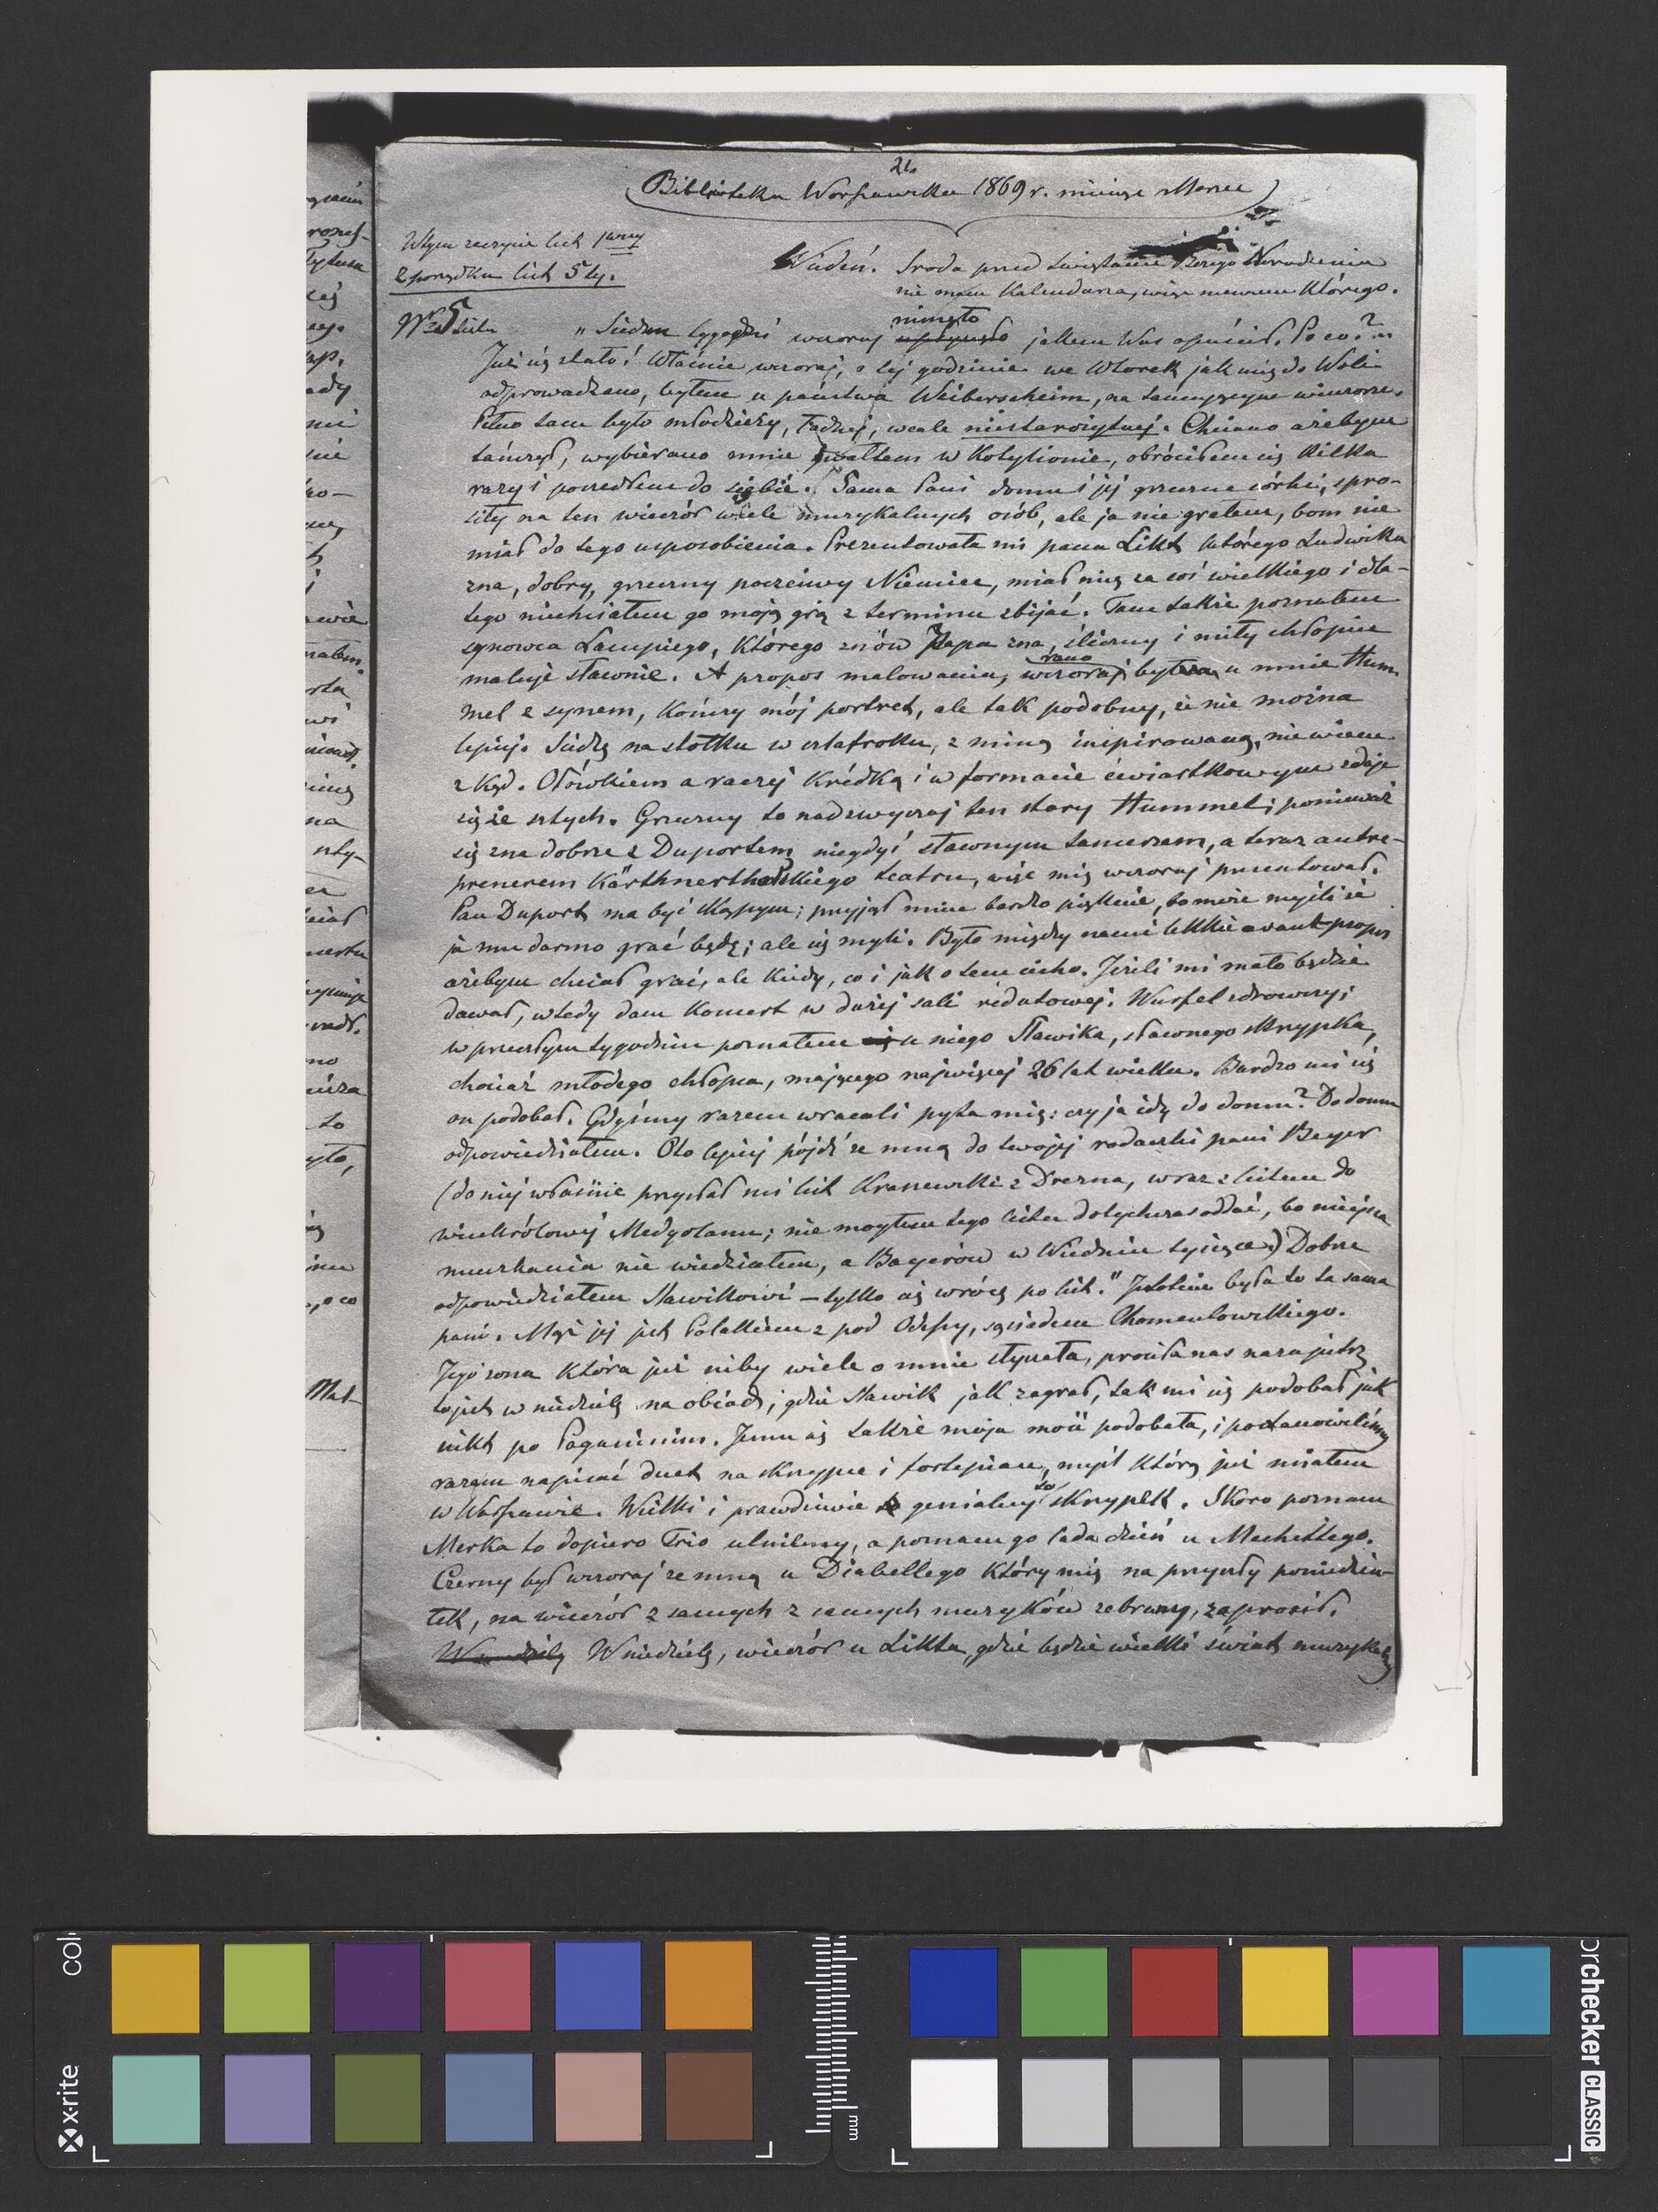 21.
(Biblioteka Warszawska 1869 r. miesiąc Marzec)
W tym zeszycie list 1wszy
Z porządku list 5ty.
Wiedeń. Sroda przed świętami Bożego Narodzenia
nie mam Kalendarza, więc niewiem Którego.
Nr 5 listu
minęło
„Siedm tygodni wczoraj upłynęło jakem Was opuścił. Po co? ...
Już się stało! Właśnie wczoraj, o tej godzinie we Wtorek jak mię do Woli
odprowadzano, byłem u państwa Weiberscheim, na tańcującym wieczorze.
Pełno tam było młodzieży, ładnej, wcale niestarożytnej. Chciano ażebym
tańczył, wybierano mnie gwałtem w Kotylionie, obróciłem się Kilka
razy i poszedłem do siebie. Sama Pani domu i jej grzeczne córki, spro-
siły na ten wieczór wiele muzykalnych osób, ale ja nie grałem, bom nie
miał do tego usposobienia. Prezentowała mi pana Likt którego Ludwika
zna, dobry, grzeczny poczciwy Niemiec, miał mię za coś wielkiego i dla-
tego niechciałem go moją grą z terminu zbijać. Tam także poznałem
synowca Lampiego, Którego znów Papa zna, śliczny i miły chłopiec
maluje sławnie. A propos malowania, wczoraj rano był u mnie Hum-
mel z synem, Kończy mój portret, ale tak podobny, że nie można
lepiej. Siedzę na stołku w szlafroku, z miną inspirowaną, niewiem
z kąd. Ołówkiem a raczej Krédką i w formacie ćwiartkowym zdaje
się że sztych. Grzeczny to nadzwyczaj ten stary Hummel; ponieważ
się zna dobrze z Duportem niegdyś sławnym tancerzem, a teraz antre-
prenerem Kärthnerthorskiego teatru, więc mię wczoraj prezentował.
Pan Duport ma być skąpym; przyjął mnie bardzo pięknie, bo może myśli że
ja mu darmo grać będę; ale się myli. Było między nami lekkie avant-propos
ażebym chciał grać, ale kiedy, co i jak o tem cicho. Jeżeli mi mało będzie
dawał, wtedy dam Koncert w dużej sali redutowej. Würfel zdrowszy;
w przeszłym tygodniu poznałem u niego Sławika, sławnego skrzypka,
chociaż młodego chłopca, mającego najwięcej 26 lat wieku. Bardzo mi się
on podobał. Gdyśmy razem wracali pyta mię: czy ja idę do domu? Do domu
odpowiedziałem. Oto lepiej pójdź ze mną do twojej rodaczki pani Beyer
(do niej właśnie przysłał mi list Kraszewski z Drezna, wraz z listem do
wicekrólowej Medyolanu; nie mogłem tego listu dotychczas oddać, bo miejsca
mieszkania nie wiedziałem, a Bayerów w Wiedniu tysiące) Dobrze
odpowiedziałem Slawikowi — tylko się wrócę po list." Istotnie była to ta sama
pani. Mąż jej jest Polakiem z pod Odessy, sąsiadem Chomentowskiego.
Jego żona która już niby wiele o mnie słyszała, prosiła nas nazajutrz
to jest w niedzielę na obiad; gdzie Slawik jak zagrał, tak mi się podobał jak
nikt po Paganinim. Jemu się także moja mość podobała, i postanowiliśmy
razem napisać duet na skrzypce i fortepian, myśl którą już miałem
w Warszawie. Wielki i prawdziwie genialny to skrzypek. Skoro poznam
Merka to dopiero Trio ulniemy, a poznam go lada dzień u Mechettego.
Czerny był wczoraj ze mną u Diabellego Który mię na przyszły poniedzia-
łek, na wieczór z samych z samych muzyków zebrany, zaprosił.
W niedzielę W niedzielę, wieczór u Likta, gdzie będzie wielki świat muzykalny